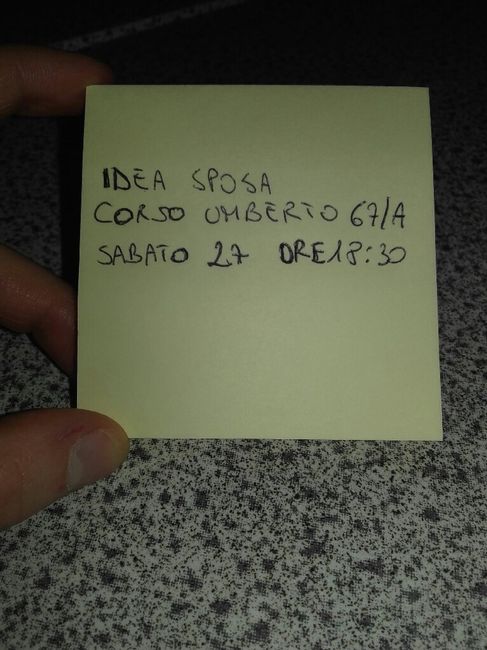 IDEA SPOSA
CORSO UMBERTO 67/A
SABATO 27 ORE 18:30